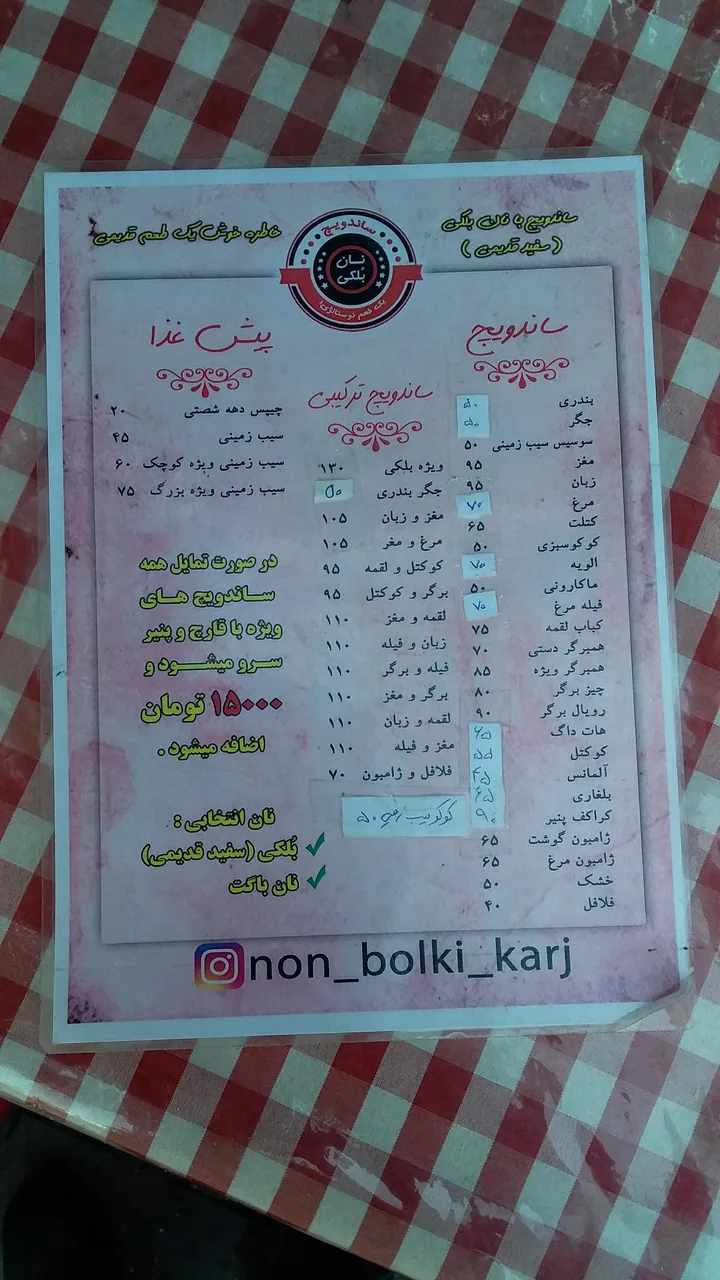 ساندویچ با نان بلکی
( سفید قدیمی )
ساندویچ
نان
بلکی
یک طعم نوستالژی!
خاطره خوش یک طعم قدیمی
ساندویچ
بندری ۵۰
جگر ۵۰
سوسیس سیب زمینی ۵۰
مغز ۹۵
زبان ۹۵
مرغ ۷۰
کتلت ۶۵
کوکوسبزی ۵۰
الویه ۷۰
ماکارونی ۵۰
فیله مرغ ۷۰
کباب لقمه ۷۵
همبرگر دستی ۷۰
همبرگر ویژه ۸۵
چیز برگر ۸۰
رویال برگر ۹۰
هات داگ ۶۵
کوکتل ۵۵
آلمانس ۴۵
بلغاری ۶۵
کراکف پنیر ۹۰
ژامبون گوشت ۶۵
ژامبون مرغ ۶۵
خشک ۵۰
فلافل ۴۰
ساندویچ ترکیبی
ویژه بلکی ۱۳۰
جگر بندری ۵۵
مغز و زبان ۱۰۵
مرغ و مغز ۱۰۵
کوکتل و لقمه ۹۵
برگر و کوکتل ۹۵
لقمه و مغز ۱۱۰
زبان و فیله ۱۱۰
فیله و برگر ۱۱۰
برگر و مغز ۱۱۰
لقمه و زبان ۱۱۰
مغز و فیله ۱۱۰
فلافل و ژامبون ۷۰
۵۰
پیش غذا
چیپس دهه شصتی ۲۰
سیب زمینی ۴۵
سیب زمینی ویژه کوچک ۶۰
سیب زمینی ویژه بزرگ ۷۵
در صورت تمایل همه
ساندویچ های
ویژه با قارچ و پنیر
سرو میشود و
۱۵۰۰۰ تومان
اضافه میشود .
نان انتخابی :
بُلکی (سفید قدیمی)
نان باگت
non_bolki_karj